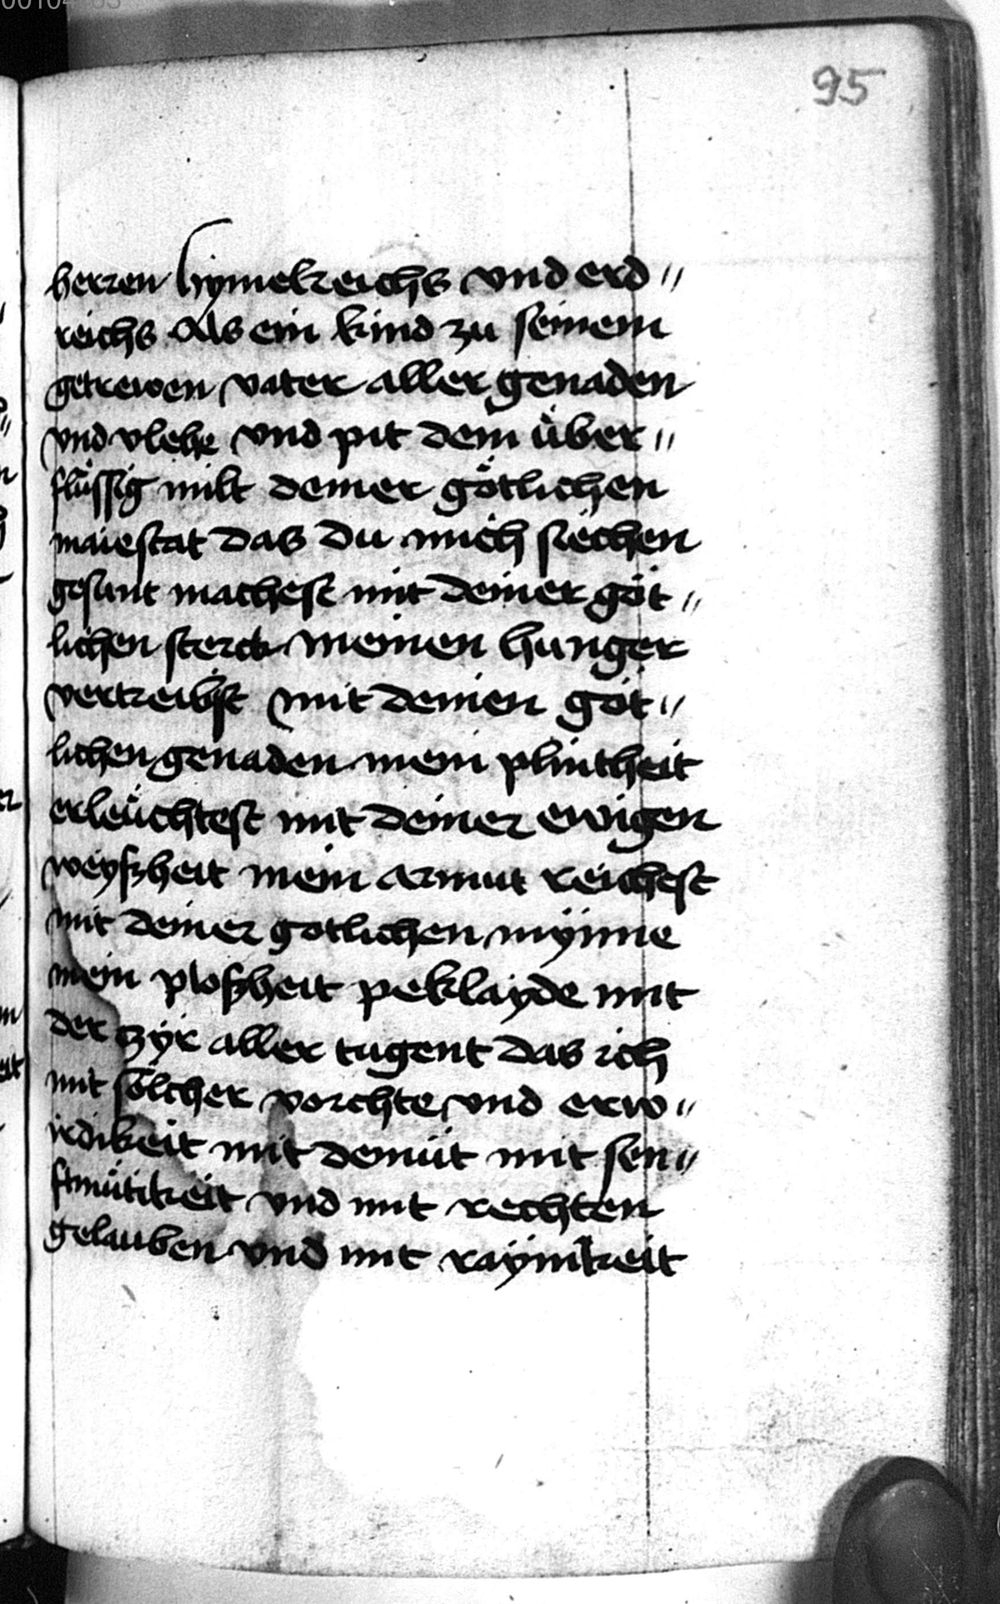 95
herren hymelreichs vnd erd〃
reichs Als ein kind zu seinem
getrewen vater aller genaden
vnd vlehe vnd pit dein über〃
flüssig milt deiner götlichen
maiestat das du mich siechen
gesunt machest mit deiner göt〃
lichen sterck meinen hunger
vertreibst mit deinen göt〃
lichen genaden mein plintheit
erleüchtest mit deiner ewigen
weyßheit mein armut reichest
mit deiner gotlichen mynne
mein ploßheit peklayde mit
der zyr aller tugent das ich
mit sölcher vorchte vnd erw〃
irdikeit mit demüt mit sen〃
ftmütikeit vnd mit rechten
gelauben vnd mit raynikeit